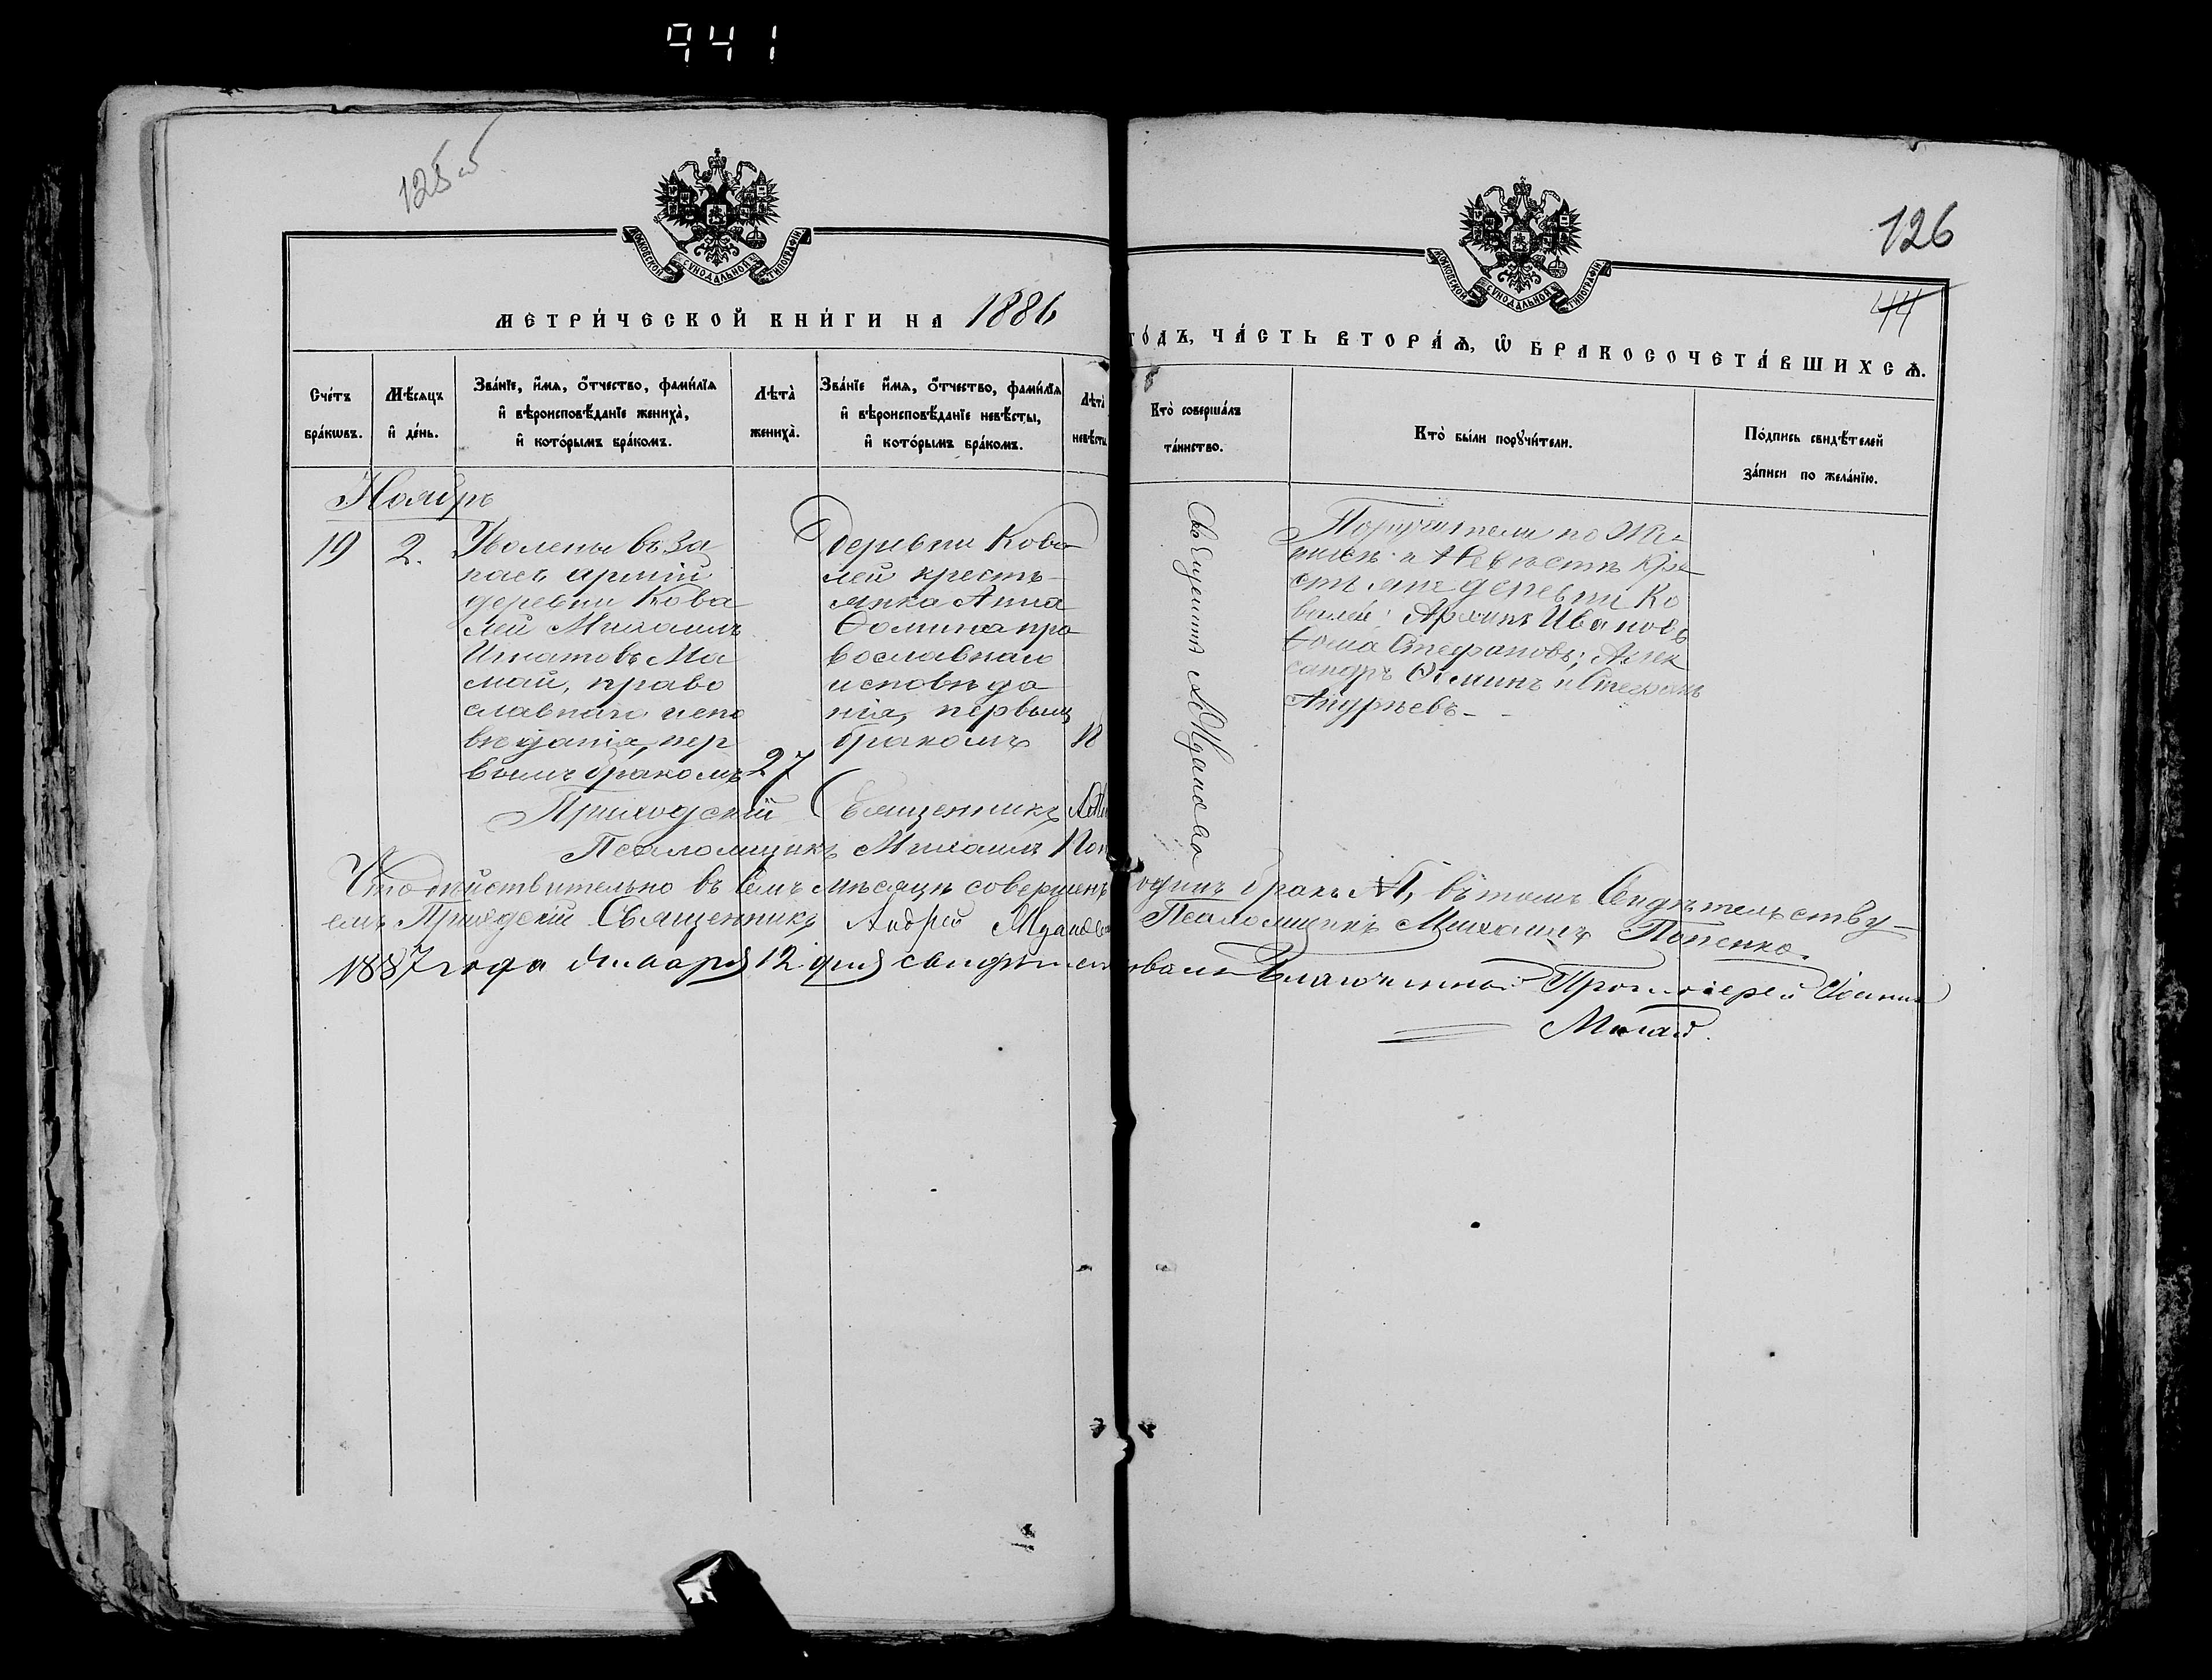 941
125 об
126
44
МОСКОВСКОЙ СѴНОДАЛЬНОЙ ТИПОГРАФІИ
МОСКОВСКОЙ СѴНОДАЛЬНОЙ ТИПОГРАФІИ
МЕТРИ́ЧЕСКОЙ КНИ́ГИ НА 1886
ГО́ДЪ, ЧА́СТЬ ВТОРА́Ѧ, Ѡ҆ БРАКОСОЧЕТА́ВШИХСѦ.
Сче́тъ
бра́кѡвъ.
Мѣ́сѧцъ
и҆ де́нь.
Зва́нїе, и҆́мѧ, ѻ҆́тчество, фами́лїѧ
и҆ вѣроисповѣ́данїе жениха̀,
и҆ кото́рымъ бра́комъ.
Лѣта̀
жениха̀.
Зва́нїе и҆́мѧ, ѻ҆́тчество, фами́лїѧ
и҆ вѣроисповѣ́данїе невѣ́сты,
и҆ кото́рымъ бра́комъ.
Лѣта̀
невѣ́сты
Кто̀ соверша́лъ
та́инство.
Кто̀ бы́ли порꙋчи́тели.
По́дпись свидѣ́телей
за́писи по жела́нїю.
Ноябрь
19
2.
Уволены въ За
пасъ армии
деревни Кова
лей Михаилъ
Игнатовъ Ма
май, право
славнаго испо
вѣданія, пер
вымъ бракомъ
27
Деревни Кова
лей кресть-
янка Анна
Ѳомина пра
вославнаго
исповѣда
нія, первымъ
бракомъ
18
Священникъ А. Мдановъ
Поручители по Же-
нихѣ и Невѣстѣ кре
стьяне деревни Ко
валей: Архипъ Ивановъ
Ѳома Стефановъ; Алек
сандръ Ѳоминъ и Стефанъ
Андреевъ - -
Приходскій Священникъ
Псаломщикъ Михаилъ Поп
Что дѣйствительно въ семъ мѣсяцѣ совершенъ одинъ бракъ №1, въ томъ Свидѣтельству-
емъ Приходскій Священникъ Андрей Псаломщикъ Михаилъ Попенко.
1887 года Января 12 дня свидѣтельствовалъ Благочинный Протоіерей Іоаннъ